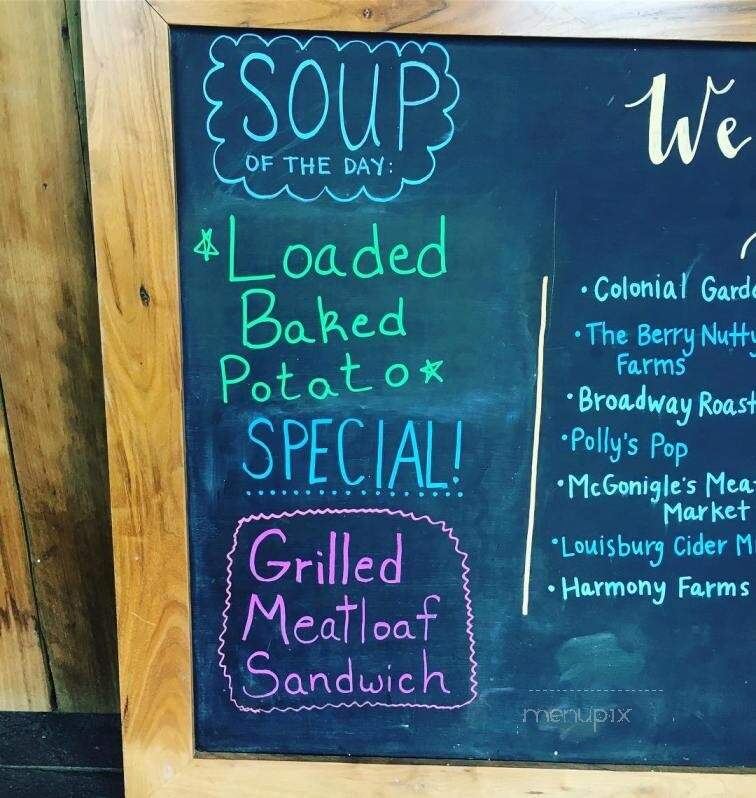 SOUP
OF THE DAY:
Loaded
Baked
Potato
SPECIAL!
Grilled
Meatloaf
Sandwich
We
• Colonial Garde
• The Berry Nutty
Farms
• Broadway Roast
• Polly's Pop
• McGonigle's Meat
Market
• Louisburg Cider Mi
• Harmony Farms
menupix